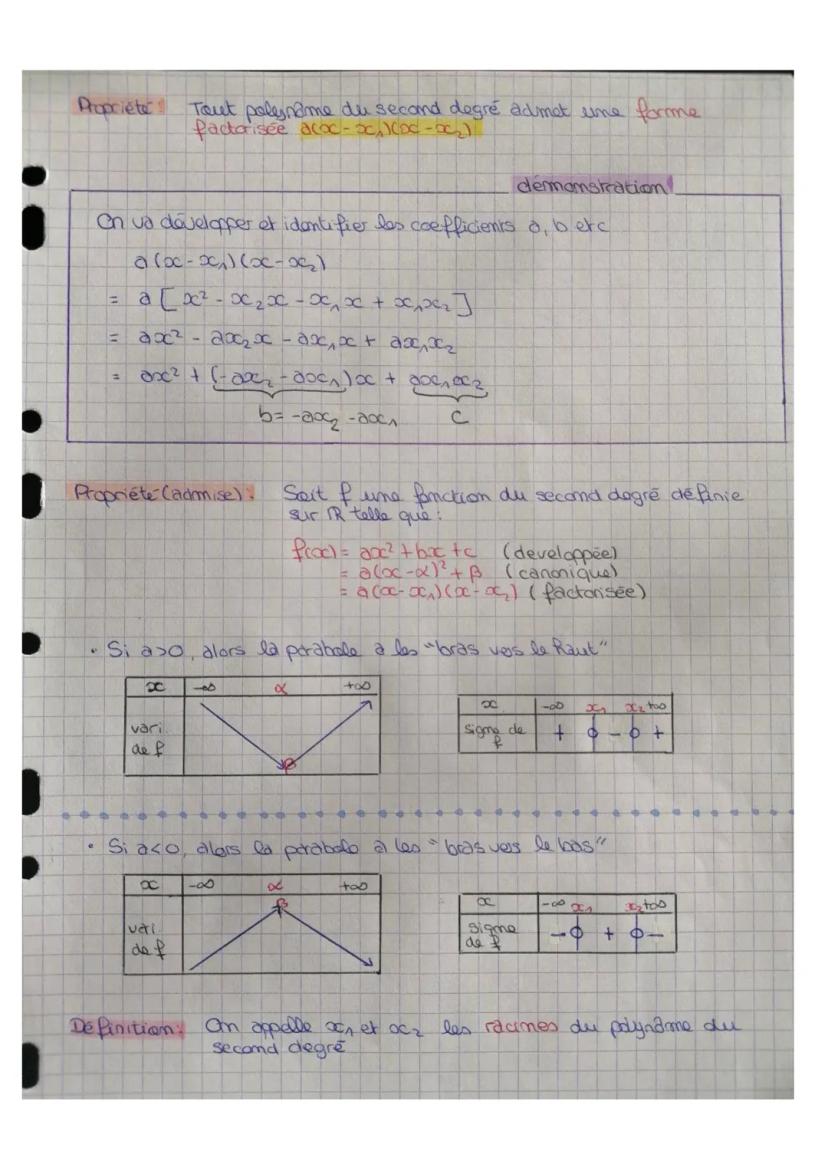 Propriété : Tout polynôme du second degré admet une forme
factorisée a(x - x₁)(x - x₂)
démonstration
On va développer et identifier les coefficients a, b et c
a(x - x₁)(x - x₂)
= a [x² - x₂x - x₁x + x₁x₂]
= ax² - ax₂x - ax₁x + ax₁x₂
= ax² + (-ax₂ - ax₁)x + ax₁x₂
b = -ax₂ - ax₁ c
Propriété (admise) : Soit f une fonction du second degré définie
sur ℝ telle que :
f(x) = ax² + bx + c (developpée)
= a(x - α)² + β (canonique)
= a(x - x₁)(x - x₂) (factorisée)
• Si a>0, alors la parabole a les "bras vers le haut"
x -∞ α +∞
vari.
de f
β
x -∞ x₁ x₂ +∞
signe de
f
+ 0 - 0 +
• Si a<0, alors la parabole a les "bras vers le bas"
x -∞ α +∞
β
vari.
de f
x -∞ x₁ x₂ +∞
signe
de f
- 0 + 0 -
Définition : On appelle x₁ et x₂ les racines du polynôme du
second degré